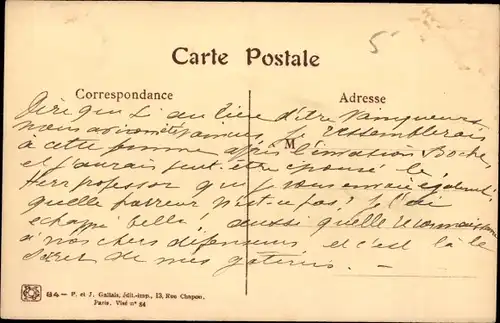 5
Carte Postale
Correspondance
Adresse
Dire que si au lieu d'être vainqueurs
nous avions été vaincus, je ressemblerais
M
à cette femme après l'invasion Boche
et j'aurais peut-être épousé le
Herr professor que je vous envoie également
quelle horreur n'est-ce pas? je l'ai
échappé belle! aussi quelle reconnaissance
à nos chers défenseurs et c'est là le
de mes
84 — P. et J. Gallais, édit.-imp., 13, Rue Chapon.
Paris. Visé n° 64